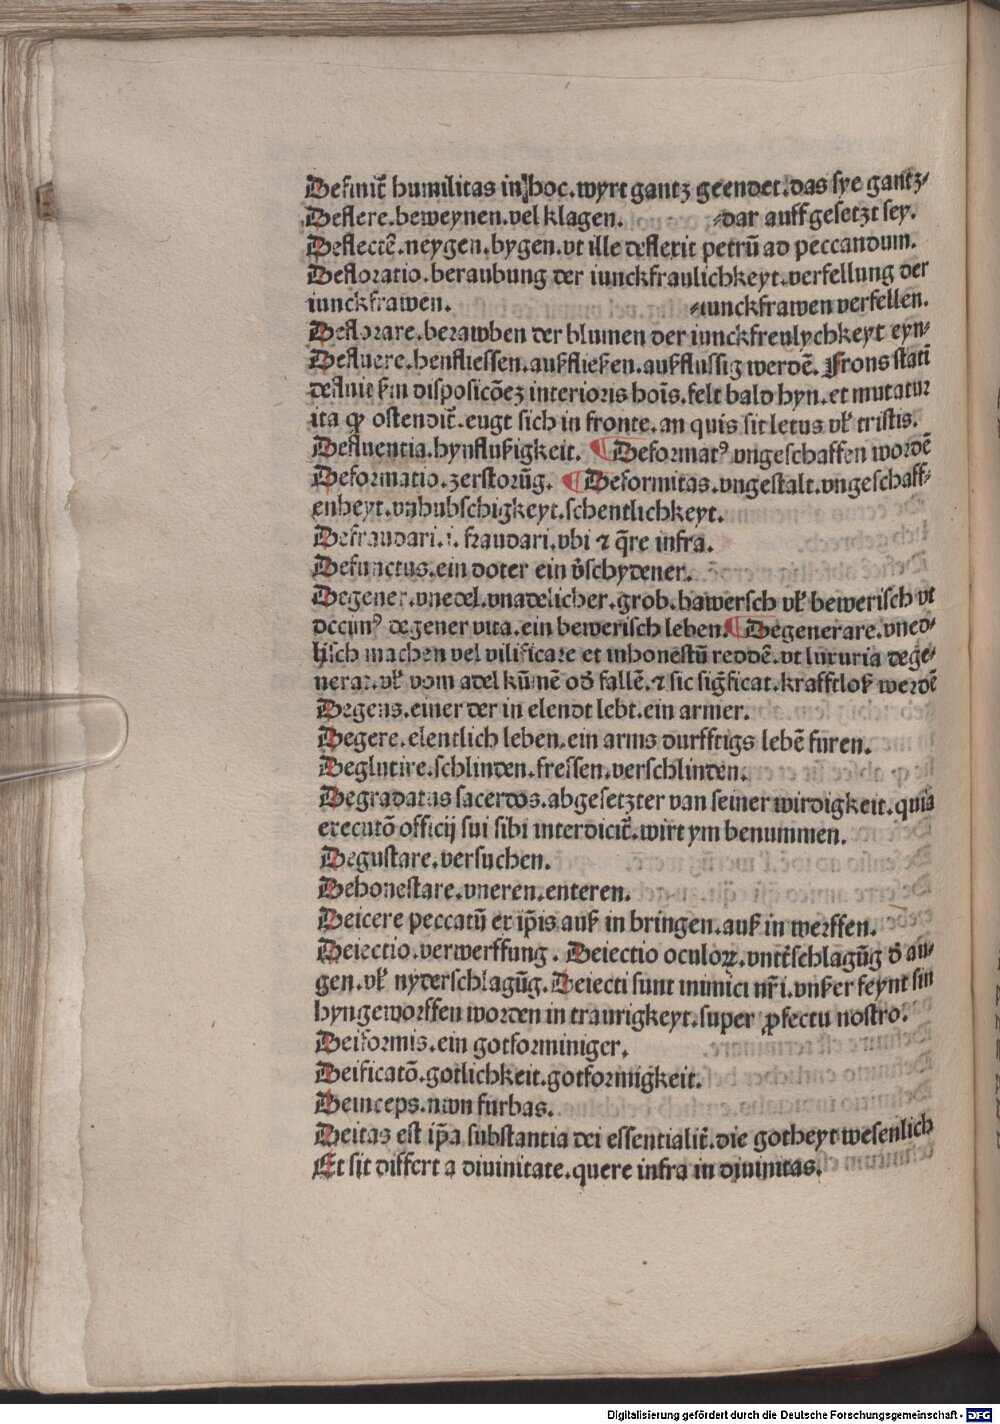 Definit̃ humilitas in hoc.wyrt gantz geendet.das sye gantz⸗
Deflere.beweynen.vel klagen. ⸗dar auff gesetzt sey.
Deflectẽ.neygen.bygen.vt ille deflexit petrũ ad peccandum.
Defloratio.beraubung der iunckfraulichkeyt.verfellung der
iunckfrawen. ⸗iunckfrawen verfellen.
Deflorare.berawben der blumen der iunckfreulychkeyt eyn⸗
Defluere.henfliessen.außfließen.außflussig werdẽ. Frons statĩ
defluit ßm disposicõez interioris hoĩs.felt bald hyn.et mutatur
ita ꝙ ostendit̃.eugt sich in fronte.an quis sit letus vł tristis.
Defluentia.hynflußigkeit. ¶ Deformatꝰ vngeschaffen wordẽ
Deformatio.zerstorũg. ¶ Deformitas.vngestalt.vngeschaff⸗
enheyt.vnhubschigkeyt.schentlichkeyt.
Defraudari.i. fraudari.vbi ⁊ q̃re infra.
Defunctus.ein doter ein v̓schydener.
Degener.vnedel.vnadelicher.grob.bawersch vł bewerisch vt
dccimꝰ degener vita.ein bewerisch leben. ¶ Degenerare.vned⸗
lisch machen vel vilificare et inhonestũ reddẽ.vt luxuria dege⸗
nerat.vł vom adel kũmẽ od̓ fallẽ.⁊ sic sig̃ficat.krafftloß werdẽ
Degens.einer der in elendt lebt.ein armer.
Degere.elentlich leben.ein arms durfftigs lebẽ furen.
Deglutire.schlinden.fressen.verschlinden.
Degradatus sacerdos.abgesetzter van seiner wirdigkeit.quia
executõ officij sui sibi interdicit̃.wirt ym benummen.
Degustare.versuchen.
Dehonestare.vneren.enteren.
Deicere peccatũ ex ip̃is auß in bringen.auß in werffen.
Deiectio.verwerffung. Deiectio oculoꝝ.vnt̃schlagũg d̓ au⸗
gen.vł nyderschlagũg. Deiecti sunt inimici nr̃i.vnßer feynt sin
hyngeworffen worden in traurigkeyt.super ꝓfectu nostro.
Deiformis.ein gotforminiger.
Deificatõ.gotlichkeit.gotformigkeit.
Deinceps.nwn furbas.
Deitas est ip̃a substantia dei essentialit̃.die gotheyt wesenlich
Et sit differt a diuinitate.quere infra in diuinitas.
Digitalisierung gefördert durch die Deutsche Forschungsgemeinschaft - DFG